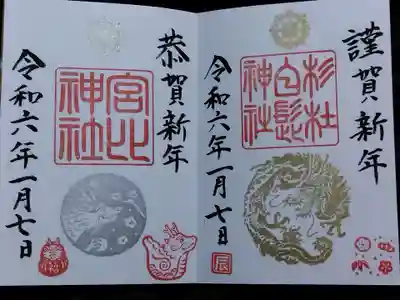 謹賀新年
杉杜
白髭
神社
令和六年一月七日
辰
恭賀新年
宮比
神社
令和六年一月七日